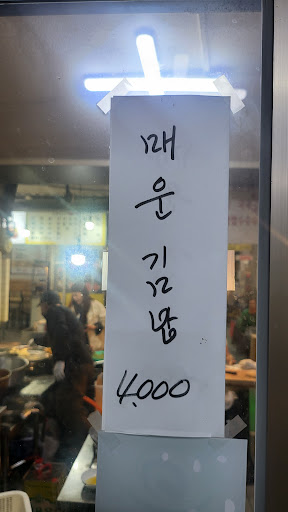 매운김밥
4.000